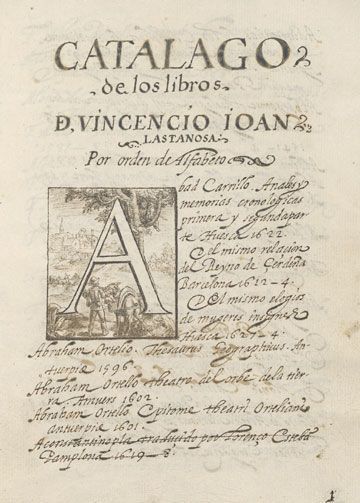 CATALAGO
de los libros
D. VINCENCIO IOAN
LASTANOSA:
Por orden de Alfabeto
A
bad Carrillo. Anales y
memorias cronologicas
primera y segunda par
te Huesca 1622.
el mismo relacion
del Reyno de Çerdeña
Barcelona 1612-4.
el mismo elogios
de mugeres insignes
Huesca 1627-4.
Abraham Ortelio. Thesaurus Geographicus. An
tuerpie 1596.
Abraham Ortello theatro del orbe de la tier
ra Anvers 1602.
Abraham Ortello Epitome theatri Orteliani
antuerpie 1601.
Aconstantinopla traducido por Lorenço
Pamplona 1619-8.
1